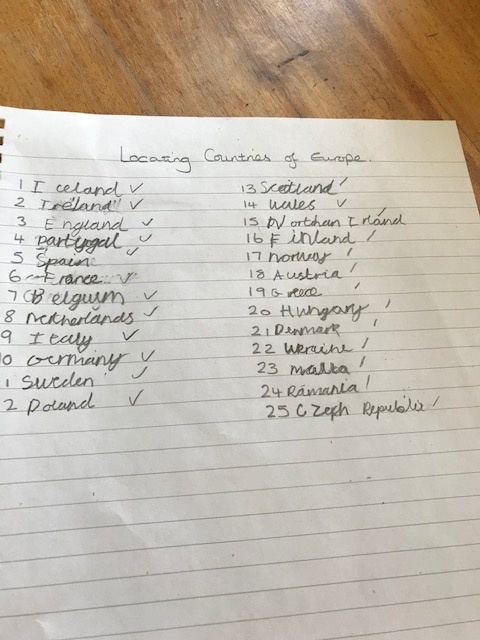 Locating Countries of Europe.
1 Iceland ✓
2 Ireland ✓
3 England ✓
4 Partugal ✓
5 Spain ✓
6 France ✓
7 Belgium ✓
8 Netherlands ✓
9 Italy ✓
10 Germany ✓
1 Sweden ✓
2 Poland ✓
13 Scotland ✓
14 Wales ✓
15 Northan Irland ✓
16 Finland ✓
17 Norway ✓
18 Austria ✓
19 Greece ✓
20 Hungary ✓
21 Denmark ✓
22 Ukraine ✓
23 malta ✓
24 Ramania ✓
25 Czeph Republic ✓